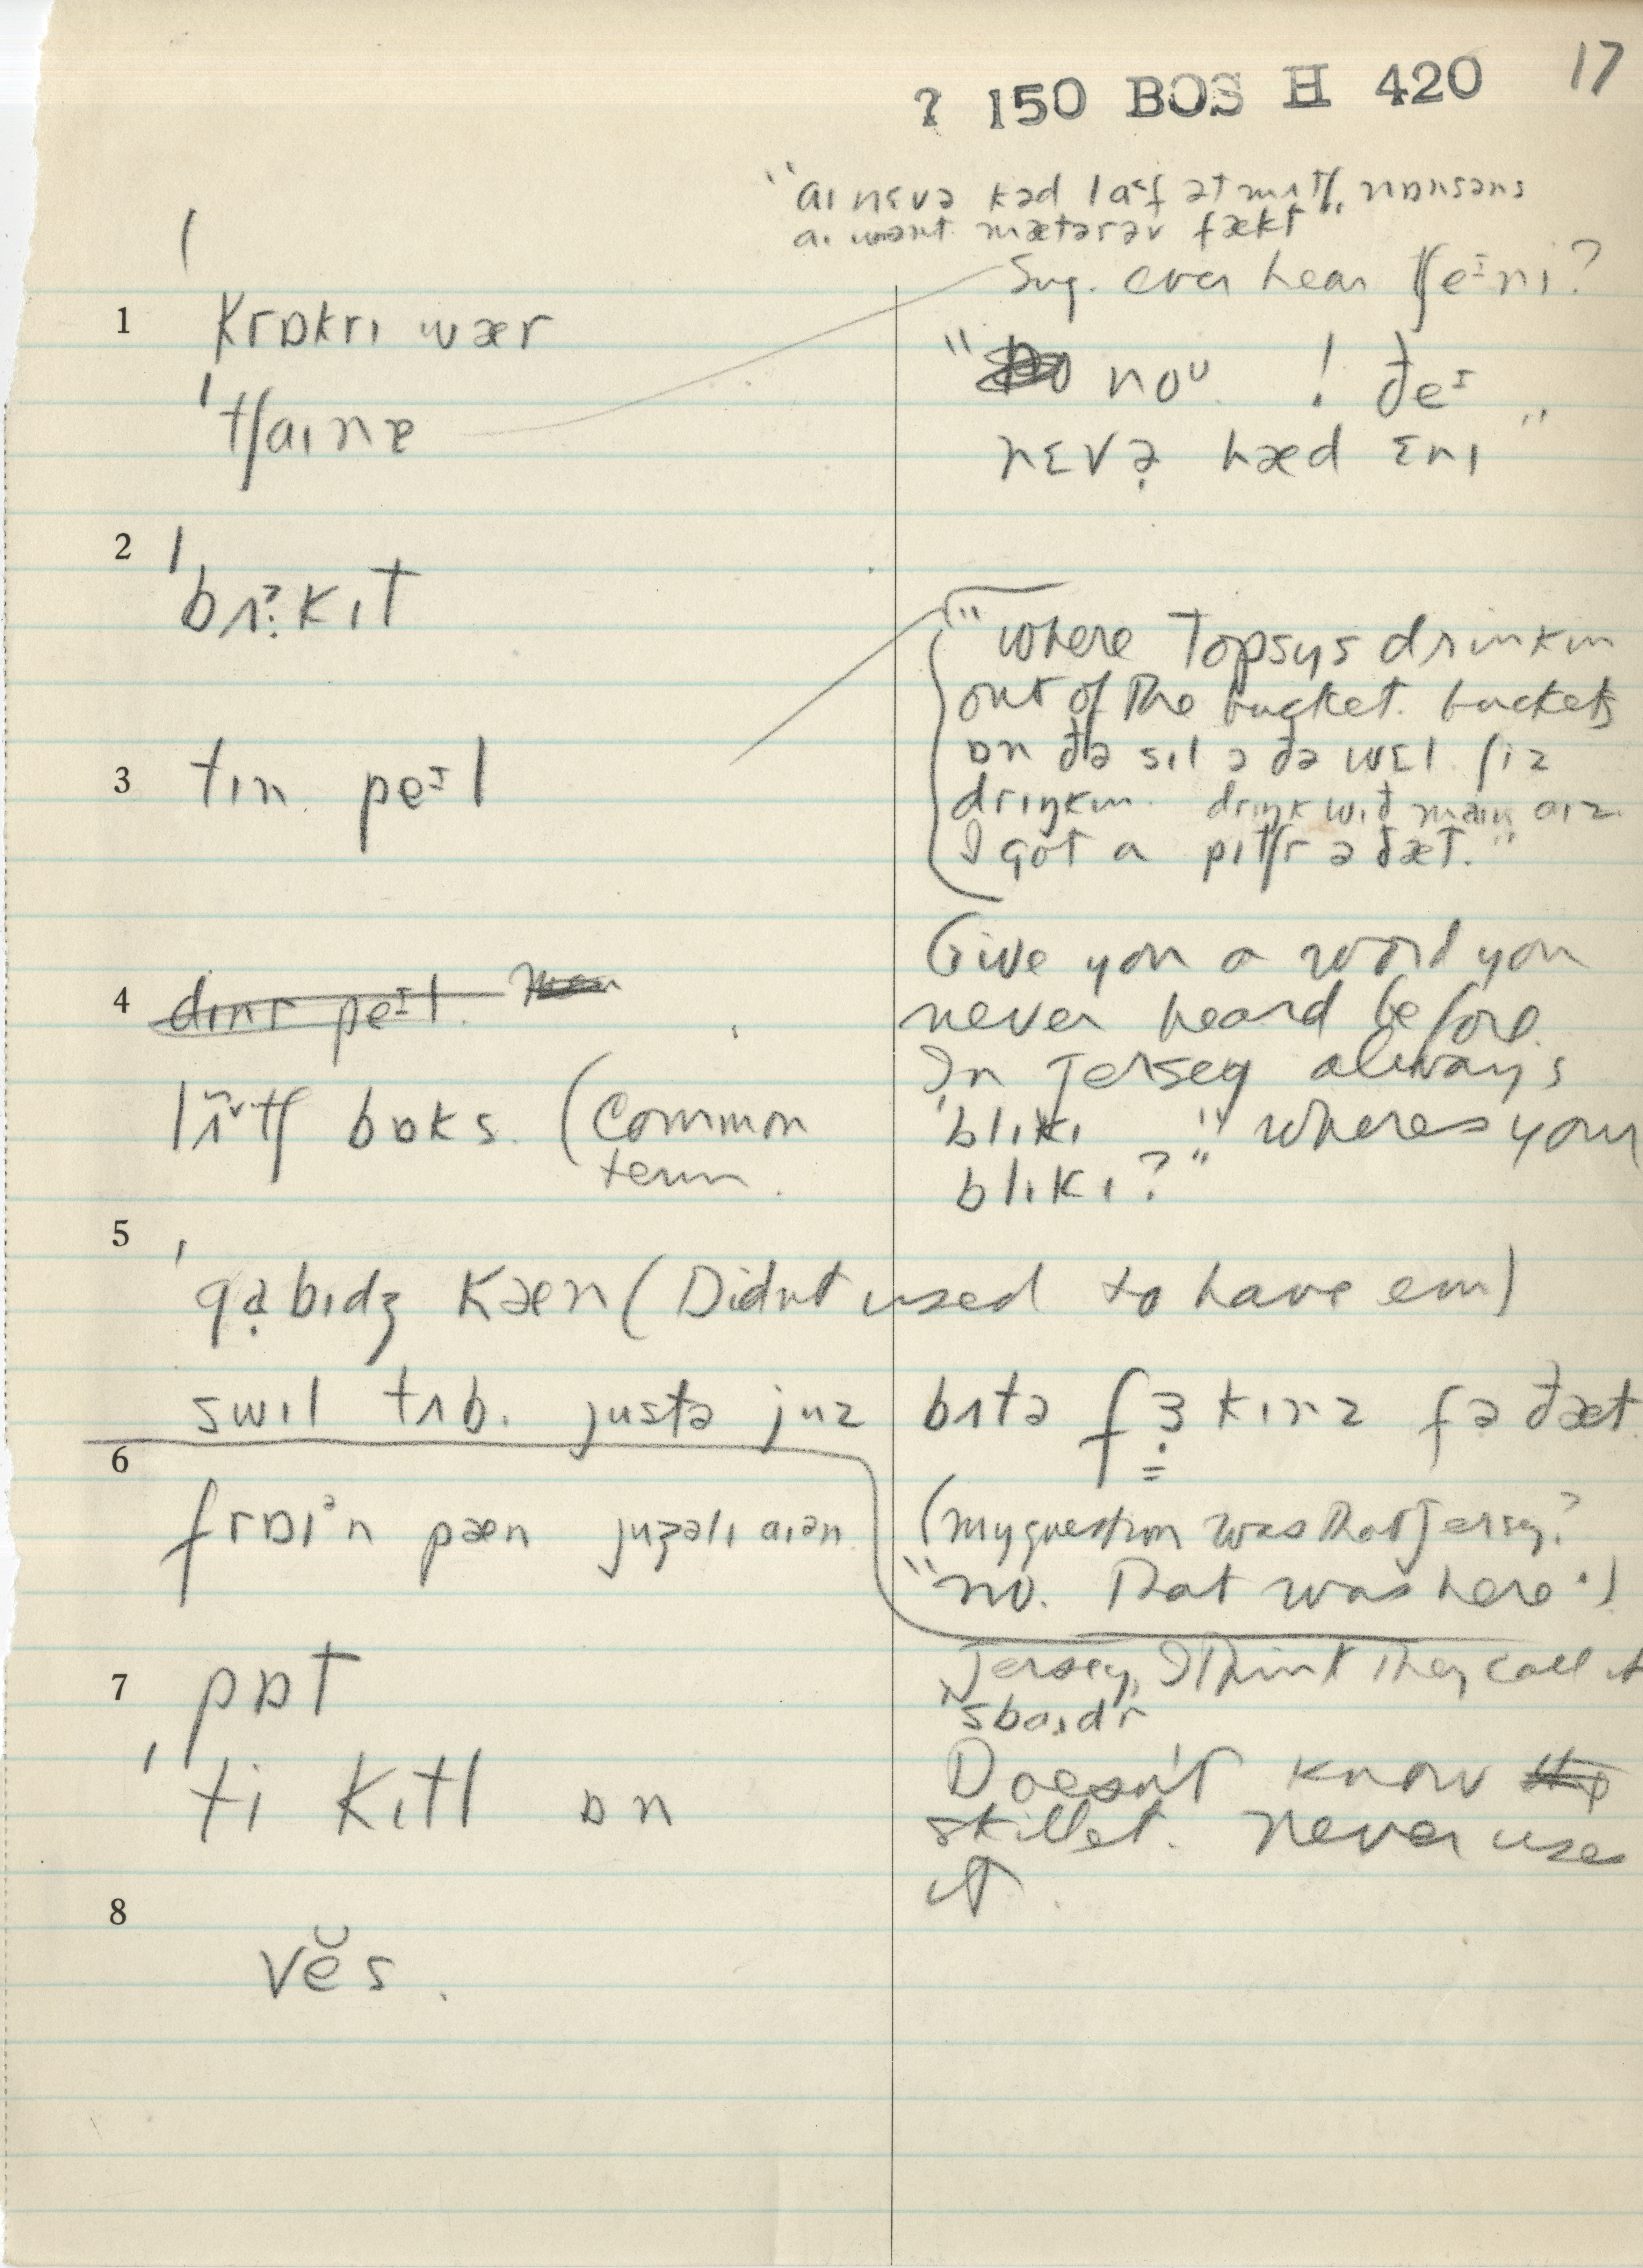 ? 150 BOS H 420 17
"aɪ nɛvə kəd laf ət mʌtʃ, nɒnsəns
aɪ want mætərəv fækt"
Sug. ever hear tʃeᴵnɪ?
1 krɒkrɪ wær
"noᵁ ! ðeᴵ
ˈtʃaɪnə
nɛvə̣ hæd ɛnɪ"
2 ˈbʌkɪt
"where Topsys drinkin
out of the bucket. buckets
ɒn ðə sɪl ə ðə wɛl ʃiz
3 tɪn peᴵl
drɪŋkɪn. drɪŋk wɪð maɪn aɪz.
I got a pɪtʃr ə ðæt."
Give you a word you
4 dɪnr peᴵl.
never heard before.
In Jersey always
lʌ̃ntʃ bɒks. (common
term.
"blɪkɪ" "wheres your
blɪkɪ?"
5 ˈgạbɪdʒ kæn (Didnt used to have em)
swɪl tʌb. justə juz bʌtə fɜ̣kɪnz fə ðæt.
6 frɒɪᵊn pæn juʒəlɪ aɪən
(my question was that Jersey?
"no. That was here".)
7 pɒt
Jersey, I think they call it
"spaɪdr"
ˈti kɪtl ɒn
Doesn't know
skillet. never use
it.
8 vĕs.